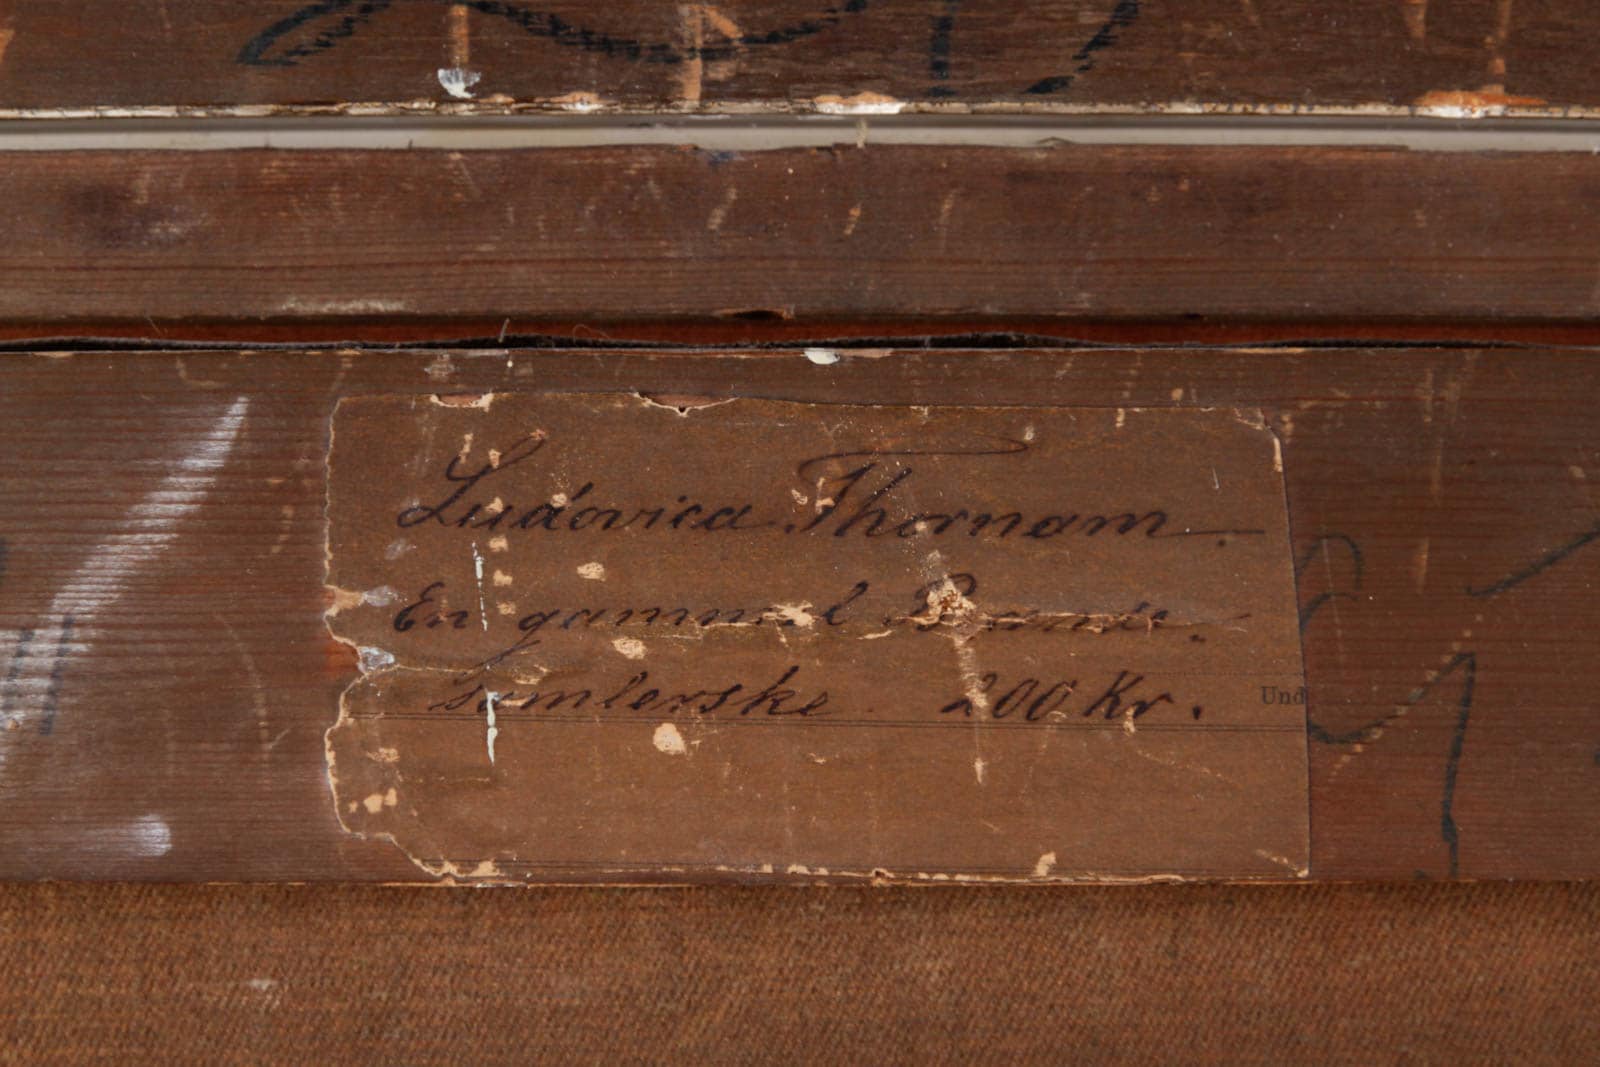 Ludovica Thornam.
En gammel Brænde-
samlerske. 200 Kr.
Und